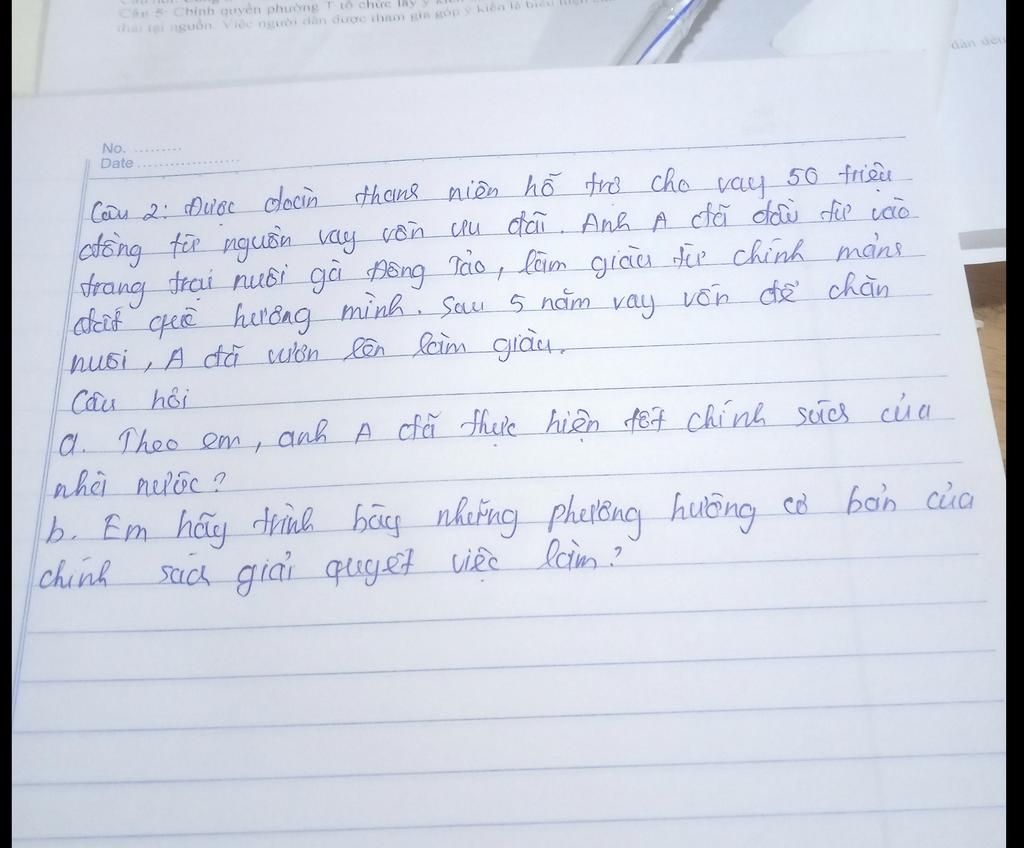 Câu 5: Chính quyền phường T tổ chức lấy ý kiến
thải tại nguồn. Việc người dân được tham gia góp ý kiến là biểu hiện
dân đều
No. ..........
Date ....................
Câu 2: Được đoàn thanh niên hỗ trợ cho vay 50 triệu
đồng từ nguồn vay vốn ưu đãi. Anh A đã đầu tư vào
trang trại nuôi gà Đông Tảo, làm giàu từ chính mảnh
đất quê hương mình. Sau 5 năm vay vốn để chăn
nuôi, A đã vươn lên làm giàu.
Câu hỏi
a. Theo em, anh A đã thực hiện tốt chính sách của
nhà nước?
b. Em hãy trình bày những phương hướng cơ bản của
chính sách giải quyết việc làm?